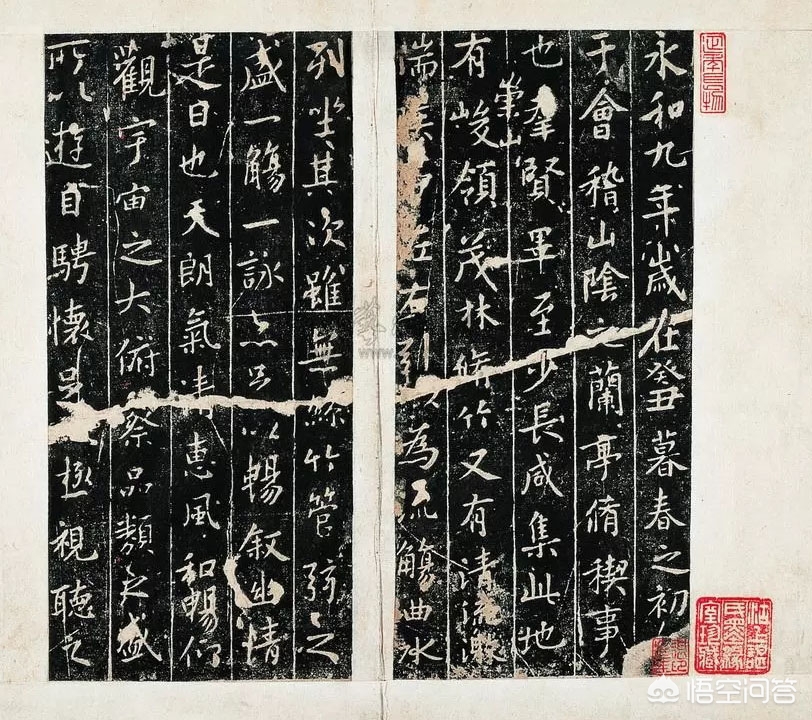 永和九年歲在癸丑暮春之初
于會稽山陰之蘭亭脩稧事
也羣賢畢至少長咸集此地
有崇山峻領茂林脩竹又有清流激
湍左右引以為流觴曲水
列坐其次雖無絲竹管弦之
盛一觴一詠亦足以暢敘幽情
是日也天朗氣清惠風和暢仰
觀宇宙之大俯察品類之盛
所以遊目騁懷足極視聽之
悟空问答